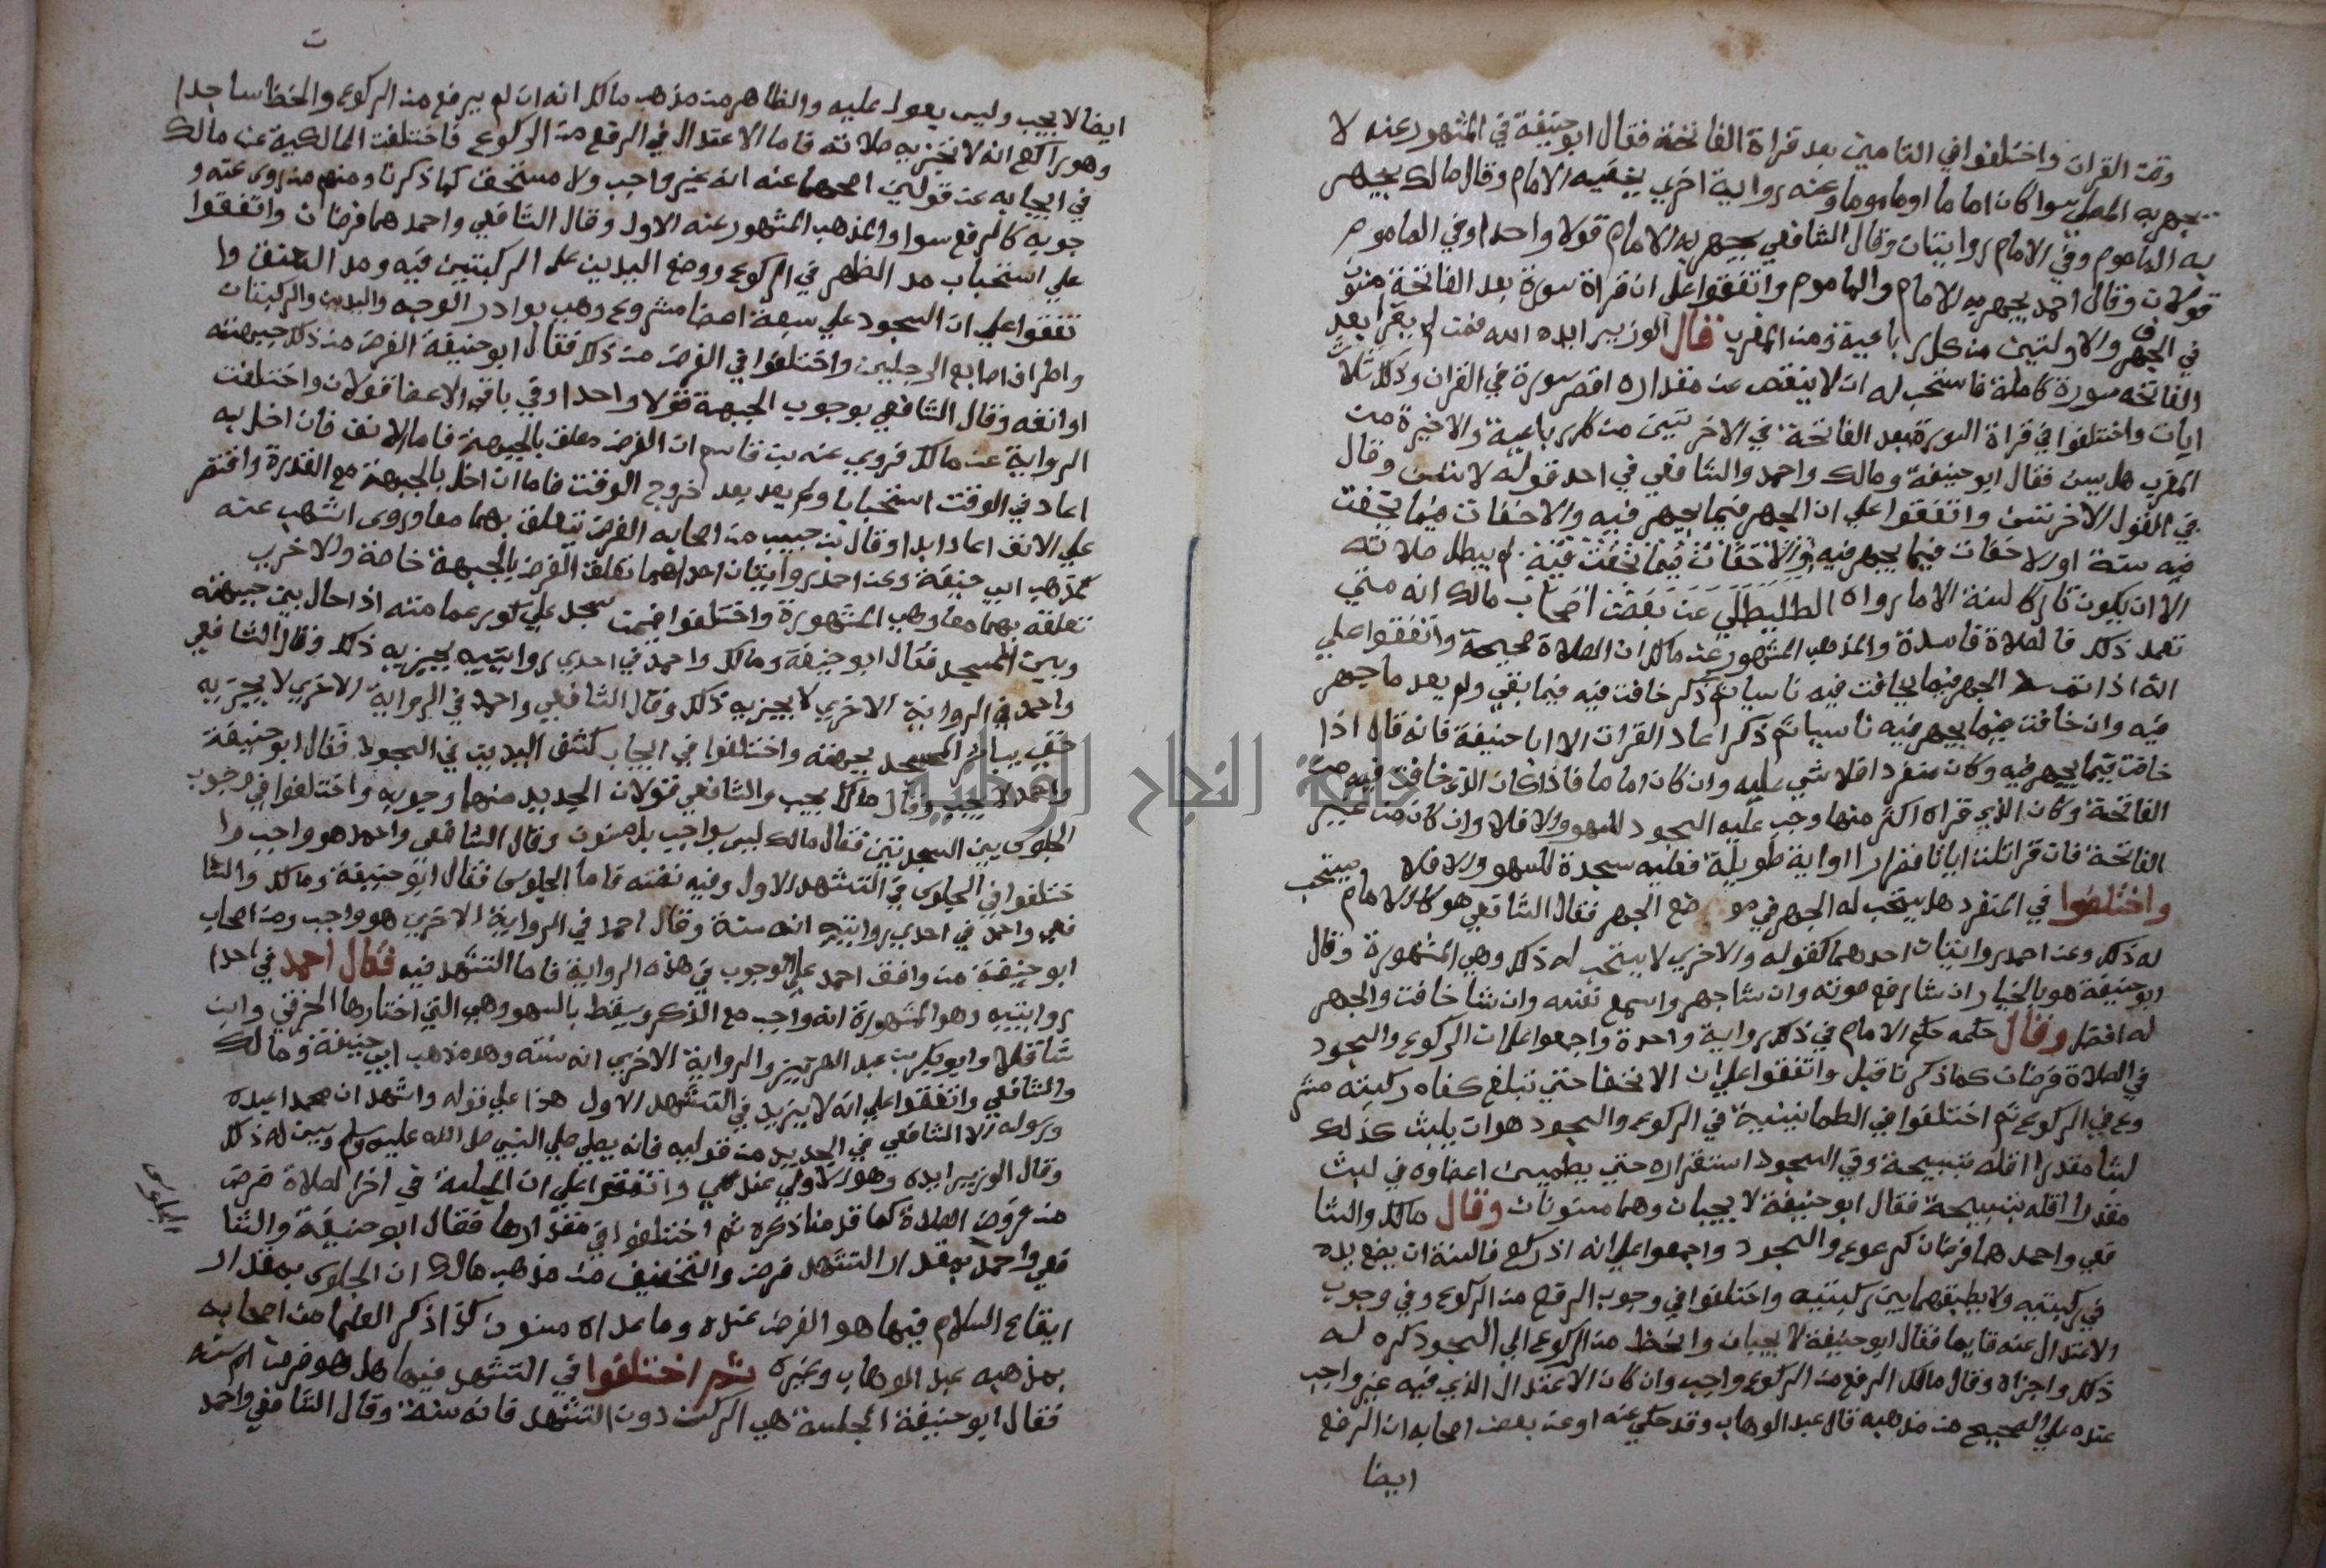 وقت القران واختلفوا في التامين بعد قراة الفاتحة فقال ابو حنيفة في المشهور عنه لا
يجهر به المصلي سوا كان اماما او ماموما وعنه رواية اخري يخفيه الامام وقال مالك يجهر
به الماموم وفي الامام روايتان وقال الشافعي يجهر به الامام قولا واحدا وفي الماموم
قولان وقال احمد يجهر به الامام والماموم واتفقوا علي ان قراة سورة بعد الفاتحة مسنون
في الفجر والاولتين من كل رباعية ومن المغرب قال الوزير ايده الله فمن لم يقرا بعد
الفاتحه سورة كاملة فاستحب له ان لا ينقص عن مقداره اقصر سورة في القران وذلك ثلاث
ايات واختلفوا في قراة السورة بعد الفاتحة في الاخرتين من كل رباعية والاخيرة من
المغرب هل يسن فقال ابو حنيفة ومالك واحمد والشافعي في احد قوله لا يسن وقال
في القول الاخر تسن واتفقوا علي ان الجهر فيما يجهر فيه والاخفات فيما يخفت
فيه سنة اولاخفات فيما يجهر فيه والاخفات فيما تخفت فيه لم يبطل صلاته
الا ان يكون تاركا لسنة الا ما رواه الطليطلي عن بعض اصحاب مالك انه متي
تعمد ذلك فالصلاة فاسدة والمذهب المشهور عن مالك ان الصلاة صحيحة واتفقوا علي
انه اذا الجهر فيما يخافت فيه ناسيا ثم ذكر خافت فيه فيما بقي ولم يعد ما جهر
فيه وان خافت فيما يجهر فيه ناسيا ثم ذكر اعاد القراة الا ابا حنيفة فانه قال اذا
خافت فيما يجهر فيه وكان منفردا فلا شي عليه وان كان اماما فاذا كان الذي خافت فيه من
الفاتحة وكان الذي قراه اكثر منها وجب عليه السجود للسهو والا فلا وان كان من غير
الفاتحة فان قرا ثلث ايات قصارا او اية طويلة فعليه سجدة للسهو والا فلا
واختلفوا في المنفرد هل يستحب له الجهر في موضع الجهر فقال الشافعي هو كالامام يستحب
له ذلك وعن احمد روايتان احدهما كقوله والاخري لا يستحب له ذلك وهي المشهورة وقال
ابو حنيفة هو بالخيار ان شا رفع صوته وان شا جهر واسمع نفسه وان شا خافت والجهر
له افضل وقال حكمه حكم الامام في ذلك رواية واحدة واجمعوا علي ان الركوع والسجود
في الصلاة فرضان كما ذكرنا قبل واتفقوا علي ان الانحنا حتي تبلغ كفاه ركبته مشر
وع في الركوع ثم اختلفوا في الطمانينية في الركوع والسجود هو ان يلبث كذلك
لبثا مقدرا اقله تسبيحة وفي السجود استقراره حتي يطمين اعضاوه في لبث
مقدرا اقله بتسبيحة فقال ابو حنيفة لا يجبان وهما مسنونان وقال مالك والشا
فعي واحمد هما فرضان كركوع والسجود واجمعوا علي انه اذ ركع فالسنة ان يضع يده
في ركبتيه ولا يطبقهما بين ركبتيه واختلفوا في وجوب الرفع من الركوع وفي وجوب
الاعتدال عنه قايما فقال ابو حنيفة لا يجبان وانحط من الركوع الي السجود كره له
ذلك واجزاه وقال مالك الرفع من الركوع واجب وان كان الاعتدال الذي فيه غير واجب
عنده علي الصحيح من مذهبه قال عبد الوهاب وقد حكي عنه او عن بعض اصحابه ان الرفع
ايضا
ايضا لا يجب وليس يعول عليه والظاهر من مذهب مالك انه ان لم يرفع من الركوع وانحط ساجدا
وهو راكع انه لا تجزيه صلاته فاما الاعتدال في الرفع من الركوع فاختلفت المالكية عن مالك
في ايجابه عن قولين اصحهما عنه انه غير واجب ولا مستحق كما ذكرنا ومنهم من روى عنه و
جوبه كالرفع سوا والمذهب المشهور عنه الاول وقال الشافعي واحمد هما فرضان واتفقوا
علي استحباب مد الظهر في الركوع ووضع اليدين علي الركبتين فيه ومد العنق وا
تفقوا علي ان السجود علي سبعة اعضا مشروع وهي بوادر الوجه واليدين والركبتان
واطراف اصابع الرجلين واختلفوا في الفرض من ذلك فقال ابو حنيفة الفرض من ذلك جبهته
او انفه وقال الشافعي بوجوب الجبهة قولا واحدا وفي باقي الاعضا قولان واختلفت
الرواية عن مالك فروي عنه بن قاسم ان الفرض معلق بالجبهة فاما الانف فان اخل به
اعاد في الوقت استحبابا ولم يعد بعد خروج الوقت فاما ان اخل بالجبهة مع القدرة واقتصر
علي الانف اعاد ابدا وقال بن حبيب من اصحابه الفرض يتعلق بهما معا وروى اشهب عنه
كمذهب ابي حنيفة وعن احمد روايتان احداهما تعلق الفرض بالجبهة خاصة والاخري
تعلقه بهما معا وهي المشهورة واختلفوا فيمن سجد علي كور عمامته اذا حال بين جبهته
وبين المسجد فقال ابو حنيفة ومالك واحمد في احدي روايتيه يجزيه ذلك وقال الشافعي
واحمد في الرواية الاخري لا يجزيه ذلك وقال الشافعي واحمد في الرواية الاخري لا يجزيه
حتي يباشر المسجد بجبهته واختلفوا في ايجاب كشف اليدين في السجود فقال ابو حنيفة
واحمد لا يجب وقال مالك يجب والشافعي قولان الجديد منهما وجوبه واختلفوا في وجوب
الجلوس بين السجدتين فقال مالك ليس بواجب بل مسنون وقال الشافعي واحمد هو واجب وا
ختلفوا في الجلوس في التشهد الاول وفيه نفسه فاما الجلوس فقال ابو حنيفة ومالك والشا
فعي واحمد في احدي روايتيه انه سنة وقال احمد في الرواية الاخري هو واجب ومن اصحاب
ابو حنيفة من وافق احمد علي الوجوب في هذه الرواية فاما التشهد فيه فقال احمد في احدا
روايتيه وهو المشهورة انه واجب مع الذكر ويسقط بالسهو وهي التي اختارها الخرقي وابن
شاقلا وابو بكر بن عبد العزيز والرواية الاخري انه سنته وهو مذهب ابي حنيفة ومالك
والشافعي واتفقوا علي انه لا يزيد في التشهد الاول هذا علي قوله واشهد ان محمدا عبده
ورسوله الا الشافعي في الجديد من قوليه فانه يصلي علي النبي صلي الله عليه وسلم ويسن له ذلك
وقال الوزير ايده وهو الاولي عندي واتفقوا علي ان الجلسة في اخر الصلاة فرض
الجلوس
من فروض الصلاة كما قدمنا ذكره ثم اختلفوا في مقدارها فقال ابو حنيفة والشا
فعي واحمد بمقدار التشهد فرض والتخفيف من مذهب مالك ان الجلوس بمقدار
ايقاع السلام فيها هو الفرض عنده وما عداه مسنون كذا ذكر العلما من اصحابه
بمذهبه عبد الوهاب وغيره ثم اختلفوا في التشهد فيها هل هو فرض ام سنه
فقال ابو حنيفة الجلسة هي الركن دون التشهد فانه سنة وقال الشافعي واحمد
جامعة النجاح الوطنية